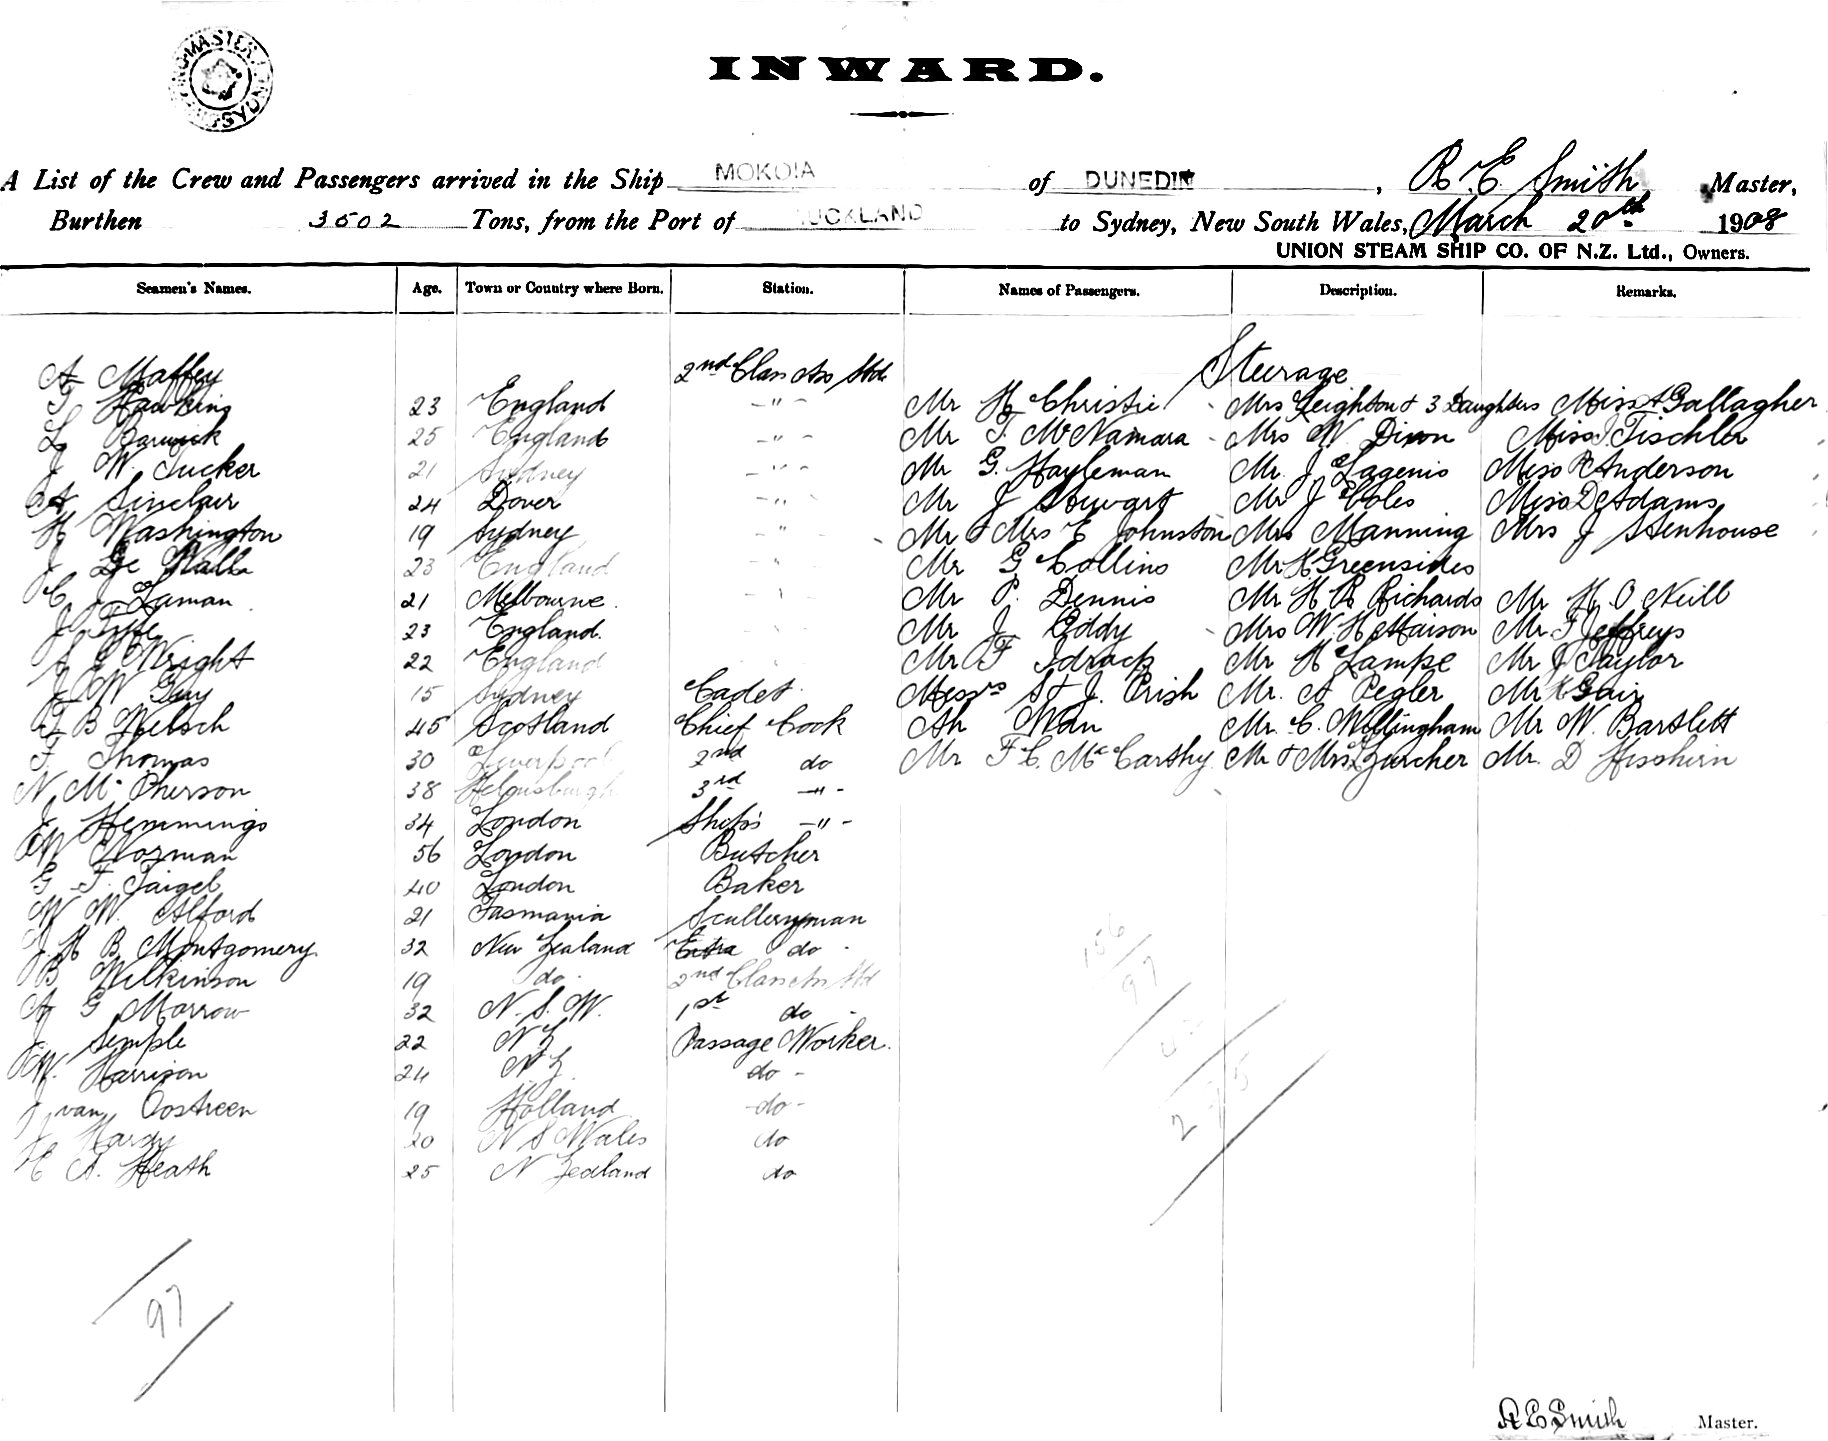 INWARD.
A List of the Crew and Passengers arrived in the Ship MOKOIA of DUNEDIN, R. E. Smith Master,
Burthen 3502 Tons, from the Port of AUCKLAND to Sydney, New South Wales, March 20th 1908
UNION STEAM SHIP CO. OF N.Z. Ltd., Owners.
Seamen's Names. Age. Town or Country where Born. Station. Names of Passengers. Description. Remarks.
Steerage
A Maffey 2nd Class Ass Std
Hawking 23 England -"- Mr H. Christie Mrs Leighton & 3 Daughters Miss A Gallagher
L Barwick 25 England -"- Mr T. McNamara Mrs W. Dixon Miss J Tischler
J W. Tucker 21 Sydney -"- Mr G. Hayleman Mr. J Lagenis Miss R Anderson
A Sinclair 24 Dover -"- Mr J Stewart Mr J Coles Miss D Adams
H Washington 19 Sydney " Mr & Mrs E Johnston Mrs Manning Mrs J Stenhouse
J 23 England " Mr G Collins Mr H Greensides
C J Laman 21 Melbourne. Mr P. Dennis Mr H R Richards Mr H O Neill
J 23 England. Mr J Eddy Mrs W. H Maison Mr F Jeffreys
Wright 22 England Mr F Mr H Lampe Mr J Taylor
J W Guy 15 Sydney Cadet Messrs S & J. Prish Mr. A Pegler Mr Gair
B Welsch 45 Scotland Chief Cook Ah Wan Mr. C. Willingham Mr W. Bartlett
T. Thomas 30 Liverpool 2nd do Mr F C. McCarthy Mr & Mrs Zurcher Mr. D
N. McPherson 38 Helensburgh 3rd -"-
J Hemmings 34 London Ship's -"-
W Norman 56 London Butcher
G F. Taigel 40 London Baker
W W. Alford 21 Tasmania Scullerman
J. H B. Montgomery 32 New Zealand Extra do
B Wilkinson 19 do 2nd Class Ass Std
A G Morrow 32 N. S. W. 1st do
J Semple 22 N Z Passage Worker.
W. Harrison 24 N Z. do -
J van Oostreen 19 Holland -do-
Hardy 20 N S Wales do
H A. Heath 25 N Zealand do
156
97
97
R E Smith Master.